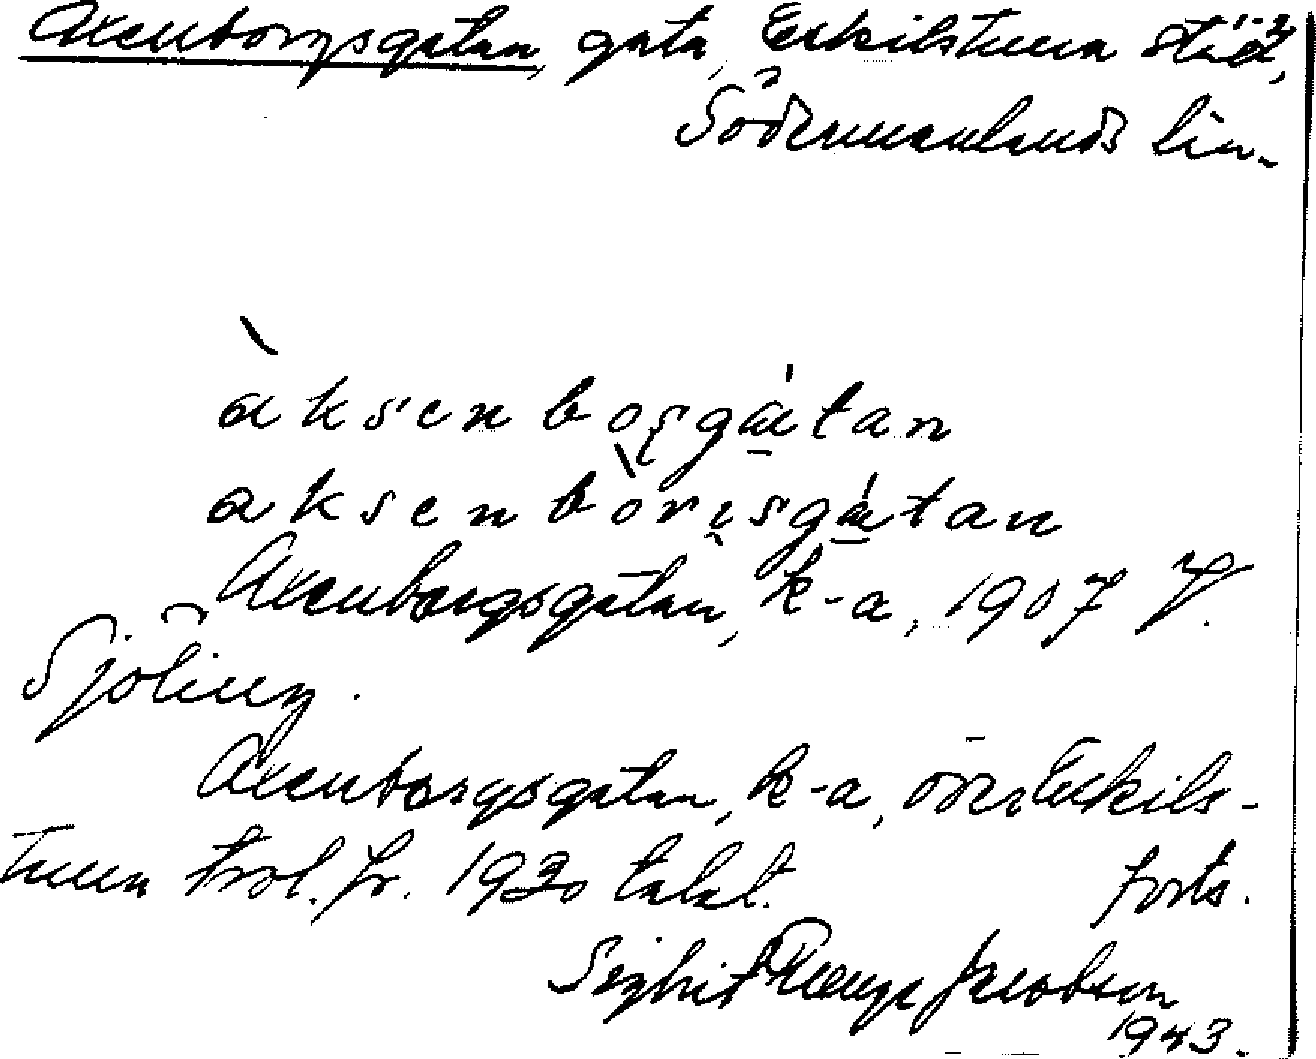 Axenborgsgatan, gata, Eskilstuna stad,
Södermanlands län.
àksenbosga̱tan
aksenbòrisga̱tan
Axenborgsgatan, k-a, 1907
Sjöling.
Axenborgsgatan, k-a, över Eskils-
tuna trol. fr. 1920 talet. forts.
Sigbrit Plenge Jacobson
1943.